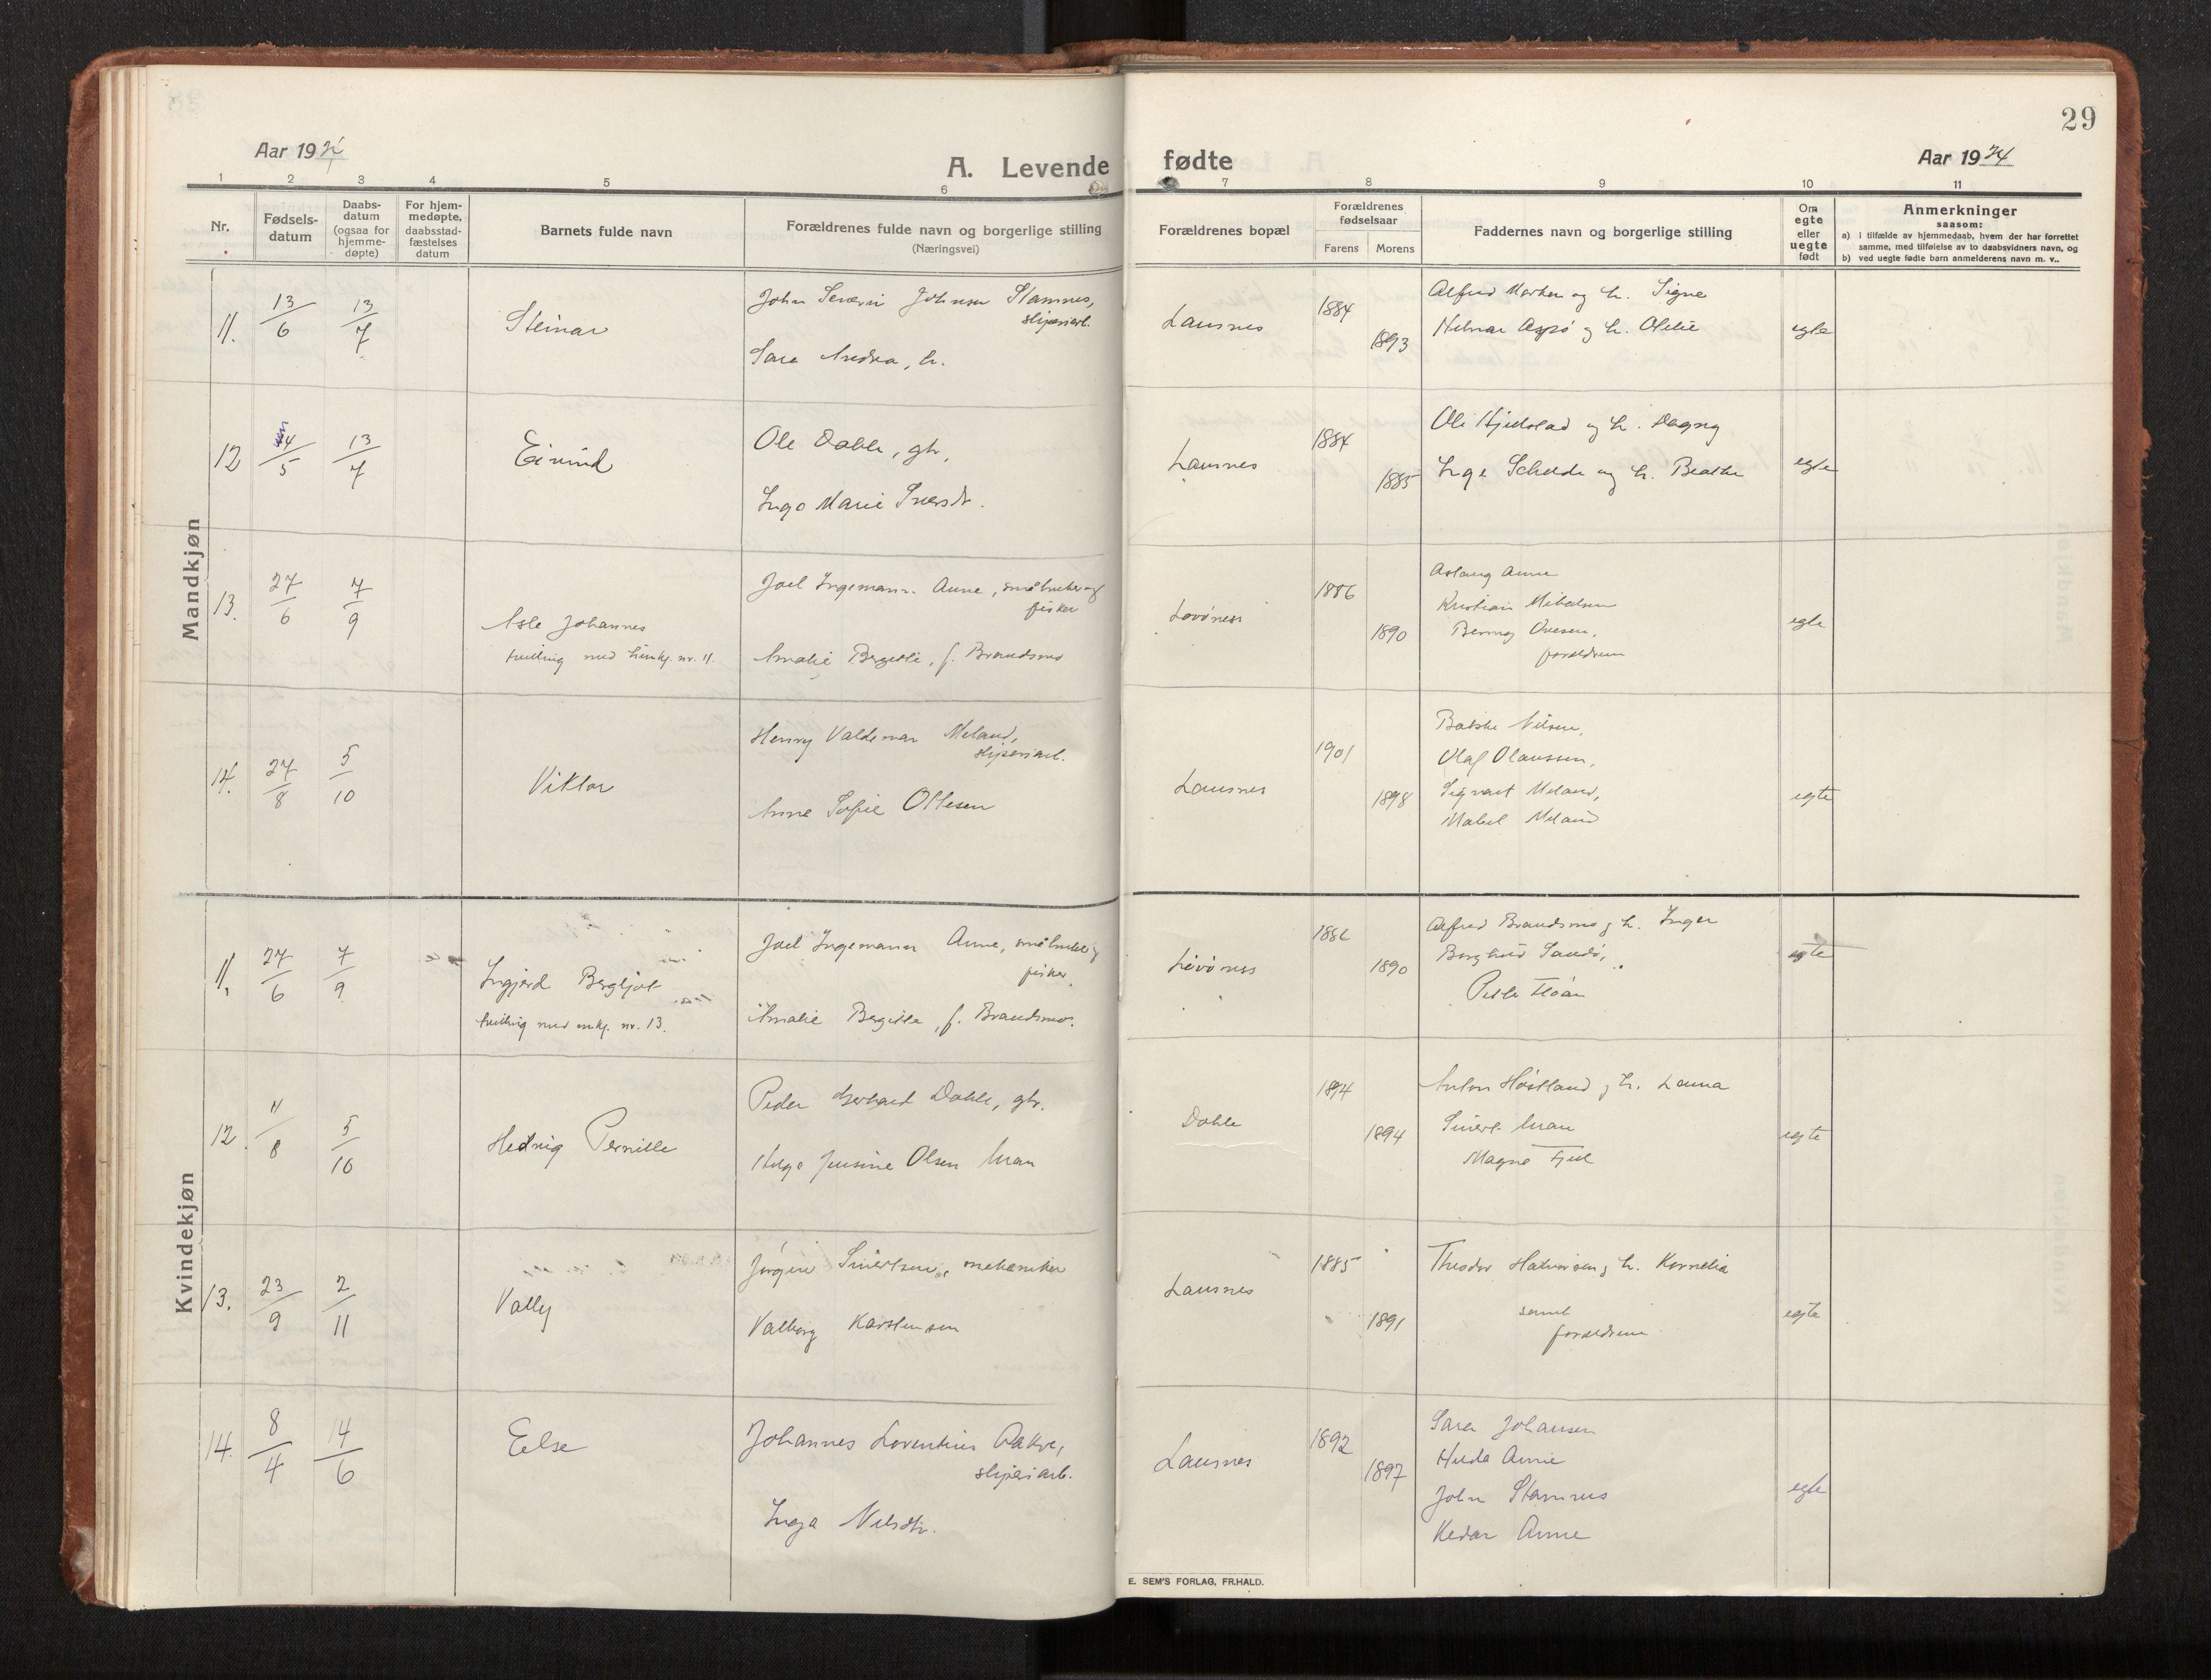 29
Aar 1924
A. Levende fødte
Aar 1924
1 2 3 4 5 6 7 8 9 10 11
Nr.
Fødsels-
datum
Daabs-
datum
(ogsaa for
hjemme-
døpte)
For hjem-
medøpte,
daabsstad-
fæstelses
datum
Barnets fulde navn
Forældrenes fulde navn og borgerlige stilling
(Næringsvei)
Forældrenes bopæl
Forældrenes
fødselsaar
Farens Morens
Faddernes navn og borgerlige stilling
Om
egte
eller
uegte
født
Anmerkninger
saasom:
a) i tilfælde av hjemmedaab, hvem der har forrettet
samme, med tilføielse av to daabsvidners navn, og
b) ved uegte fødte barn anmelderens navn m. v..
Mandkjøn
11. 13/6 13/7 Steinar
John Severin Johnsen Stamnes,
sliperiarb.
Sara Andrea, h.
Lausnes 1884 1893
Alfred og h. Signe
Hilmar Aspö og h. Ofelie
egte
12 4/5 13/7 Eivind
Ole Dahle, gbr,
Inga Marie
Lausnes 1884 1885
Ole Hjelstad og h. Dagny
Inge og h. Beathe
egte
13. 27/6 7/9 Asle Johannes
tvilling med kvinkj. nr. 11.
Joel Ingemann Aune, småbruker og
fisker
Amalie Bergitte, f. Brandsmo
Lovönes 1886 1890
Aslaug Aune
Kristian Mikalsen
Ovesen,
foreldrene
egte
14. 27/8 5/10 Viktor
Henry Valdemar Meland,
sliperiarb.
Anne Sofie Ottesen
Lausnes 1901 1898
Nilsen,
Olaf Olaussen,
Sigvart Meland,
Mabel Meland
egte
Kvindekjøn
11. 27/6 7/9 Ingjerd Bergljot
tvilling med mkj. nr. 13.
Joel Ingemann Aune, småbruker og
fisker
Amalie Bergitte, f. Brandsmo.
Lövönes 1886 1890
Alfred Brandsmo og h. Inger
Borghild Sandö,
Floan
egte
12. 11/8 5/10 Hedvig Pernille
Peder Gerhard Dahle, gbr.
Helga Jensine Olsen
Dahle 1894 1894
Anton Höstland og h. Laura
Sivert
Magna Fjell
egte
13. 23/9 2/11 Vally
Jörgen Sivertsen, mekaniker
Valborg Karstensen
Lausnes 1885 1891
Theodor Halvorsen og h. Kornelia
samt
foreldrene
egte
14. 8/4 14/6 Else
Johannes Lorentius Aakre,
sliperiarb.
Inga Nilsdtr.
Lausnes 1892 1897
Sara Johansen
Hilda Aune
John Stamnes
Kedar Aune
egte
E. SEM'S FORLAG, FR.HALD.